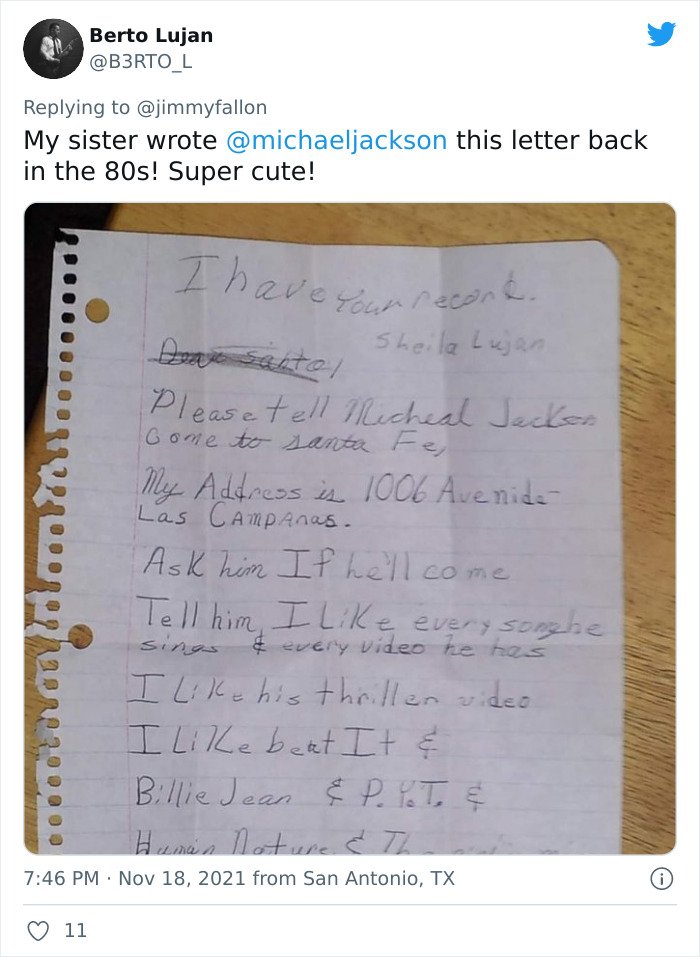 Berto Lujan
@B3RTO_L
Replying to @jimmyfallon
My sister wrote @michaeljackson this letter back
in the 80s! Super cute!
I have your record.
Sheila Lujan
Dear Santa,
Please tell Micheal Jackson
Come to santa Fe,
My Address is 1006 Avenida
Las Campanas.
Ask him If he'll come
Tell him, I Like every song he
sings & every video he has
I Like his thriller video
I Like beat It &
Billie Jean & P.Y.T. &
Human Nature & Th
7:46 PM · Nov 18, 2021 from San Antonio, TX
11